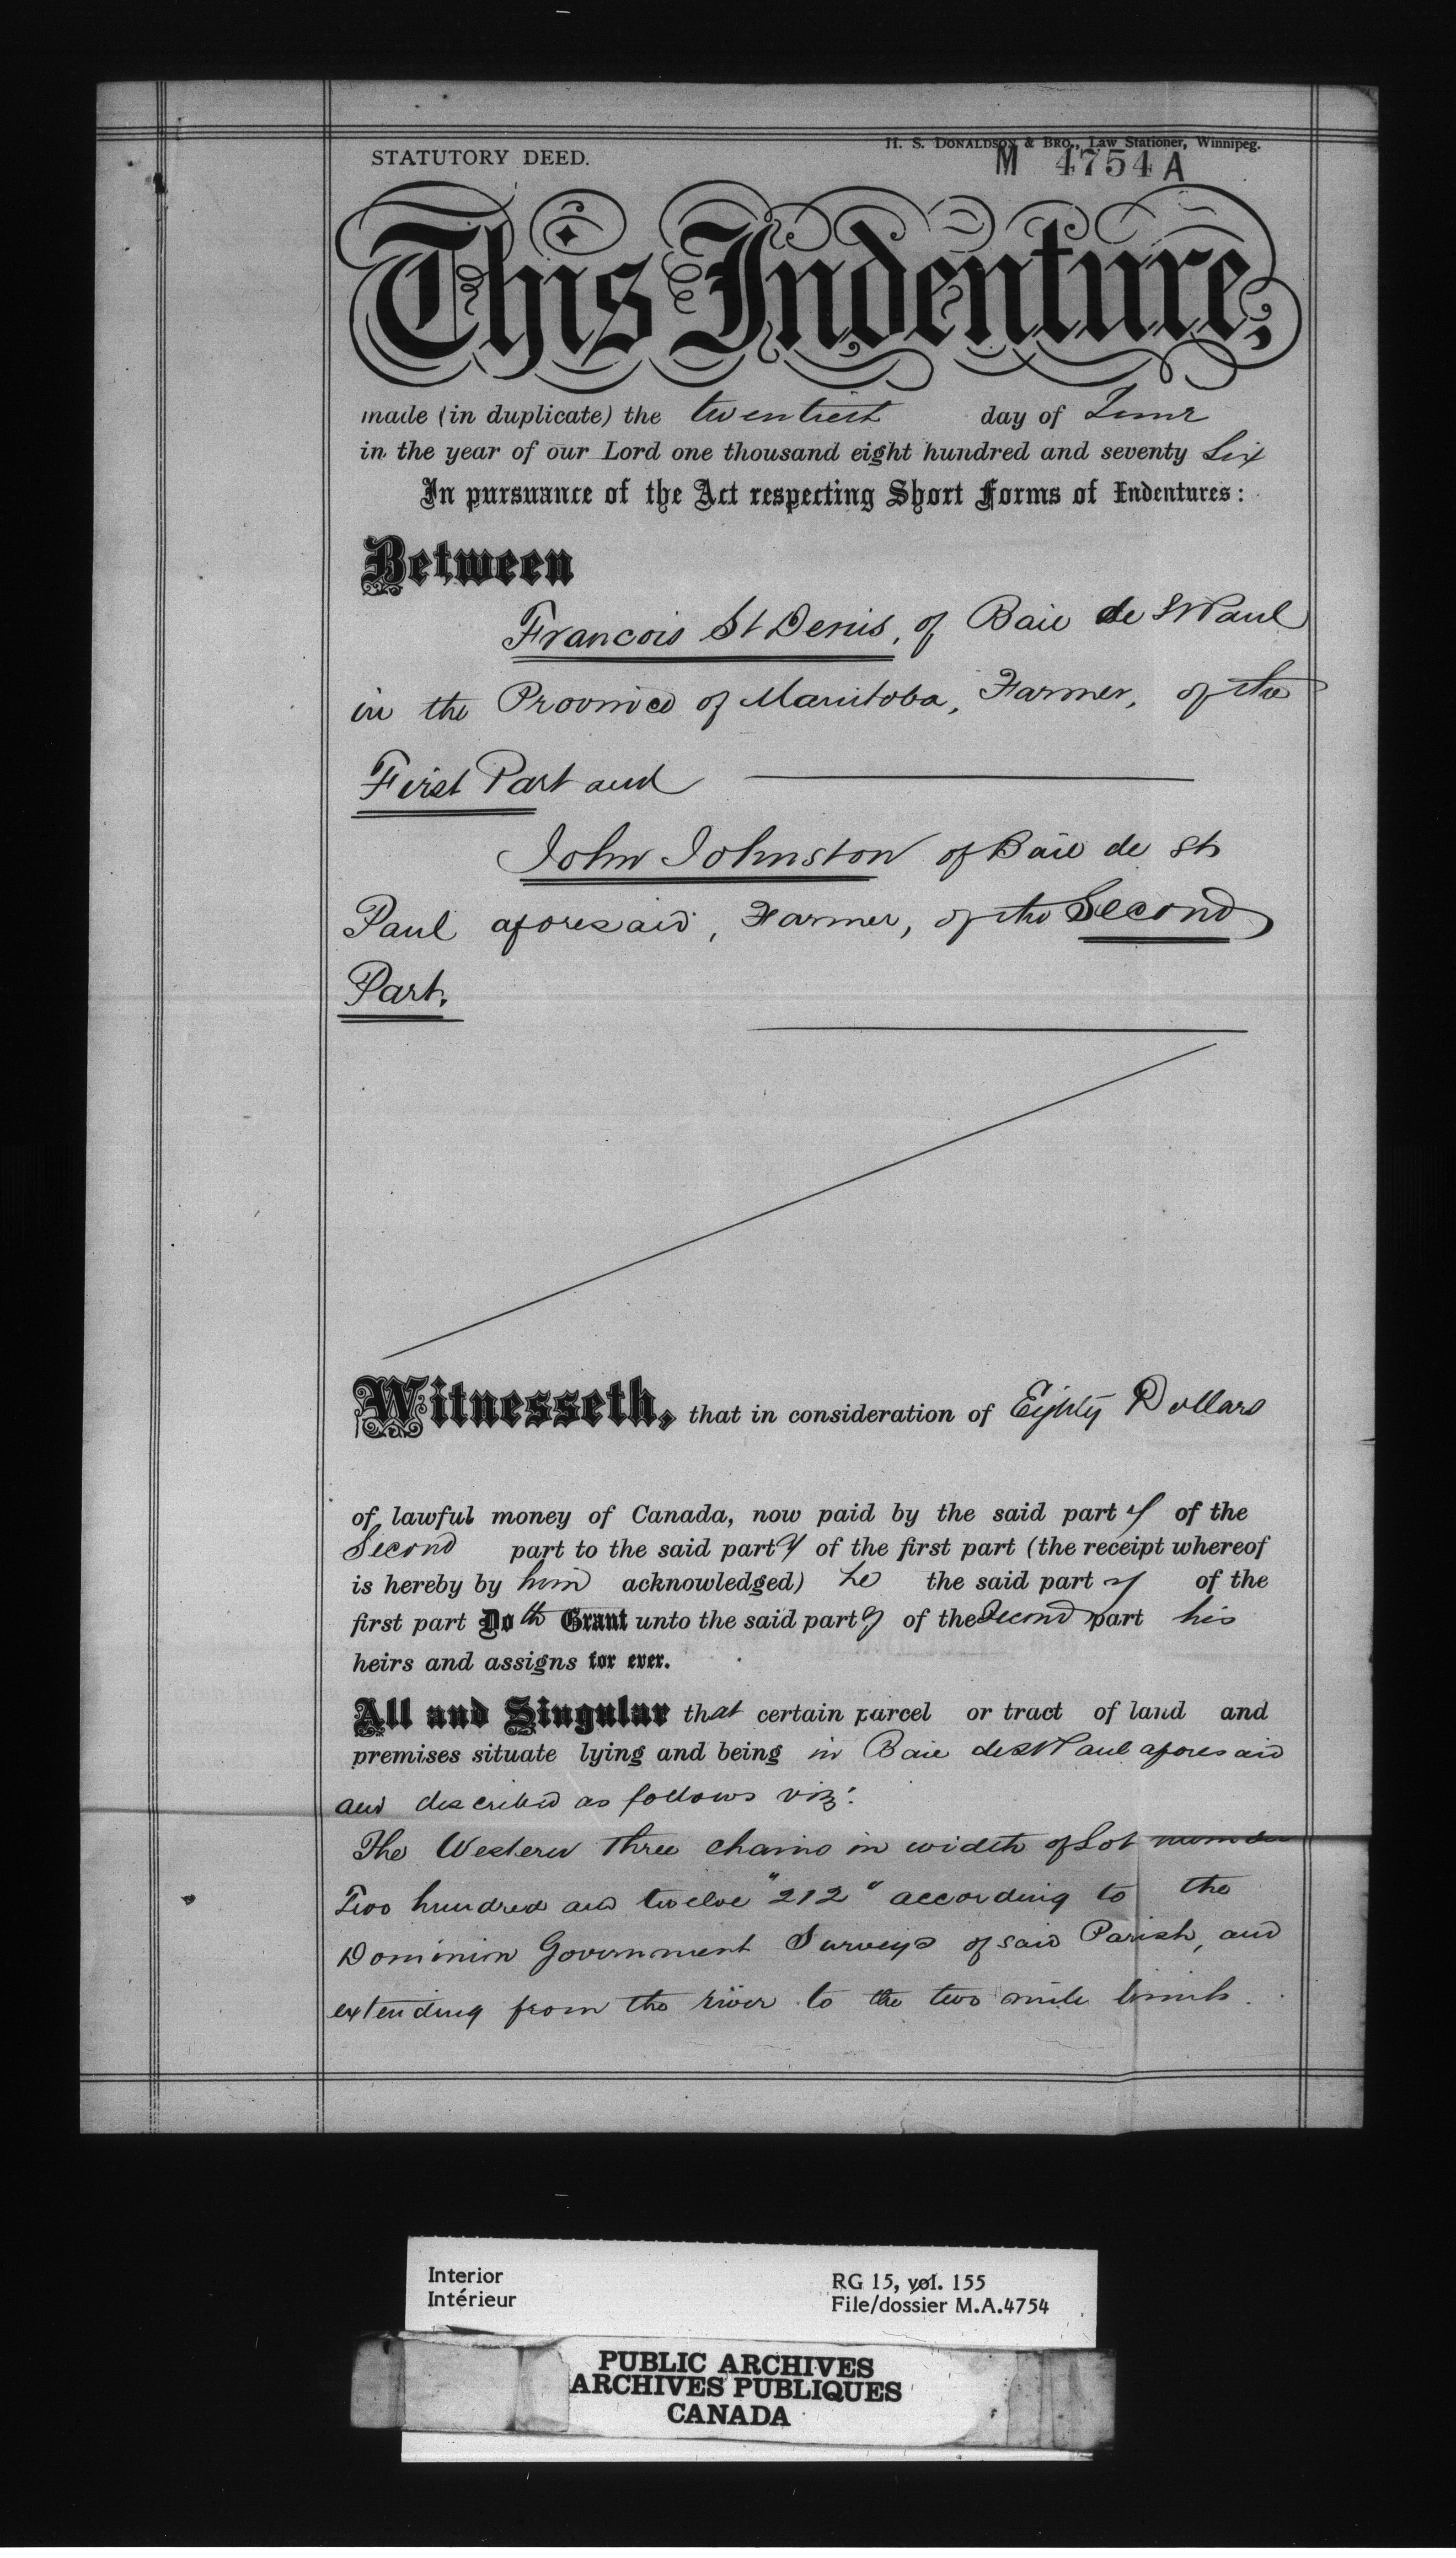 STATUTORY DEED.
H. S. DONALDSON & BRO., Law Stationer, Winnipeg.
M 4754 A
This Indenture,
made (in duplicate) the twentieth day of June
in the year of our Lord one thousand eight hundred and seventy Six
In pursuance of the Act respecting Short Forms of Indentures:
Between
Francois St Denis, of Baie de St Paul
in the Province of Manitoba, Farmer, of the
First Part and
John Johnston of Baie de St
Paul aforesaid, Farmer, of the Second
Part.
Witnesseth, that in consideration of Eighty Dollars
of lawful money of Canada, now paid by the said party of the
Second part to the said party of the first part (the receipt whereof
is hereby by him acknowledged) he the said party of the
first part Doth Grant unto the said party of the Second part his
heirs and assigns for ever.
All and Singular that certain parcel or tract of land and
premises situate lying and being in Baie de St Paul aforesaid
and described as follows viz:
The Western three chains in width of Lot number
Two hundred and twelve "212" according to the
Dominion Government Surveys of said Parish, and
extending from the river to the two mile limits.
Interior
Intérieur
RG 15, vol. 155
File/dossier M.A.4754
PUBLIC ARCHIVES
ARCHIVES PUBLIQUES
CANADA